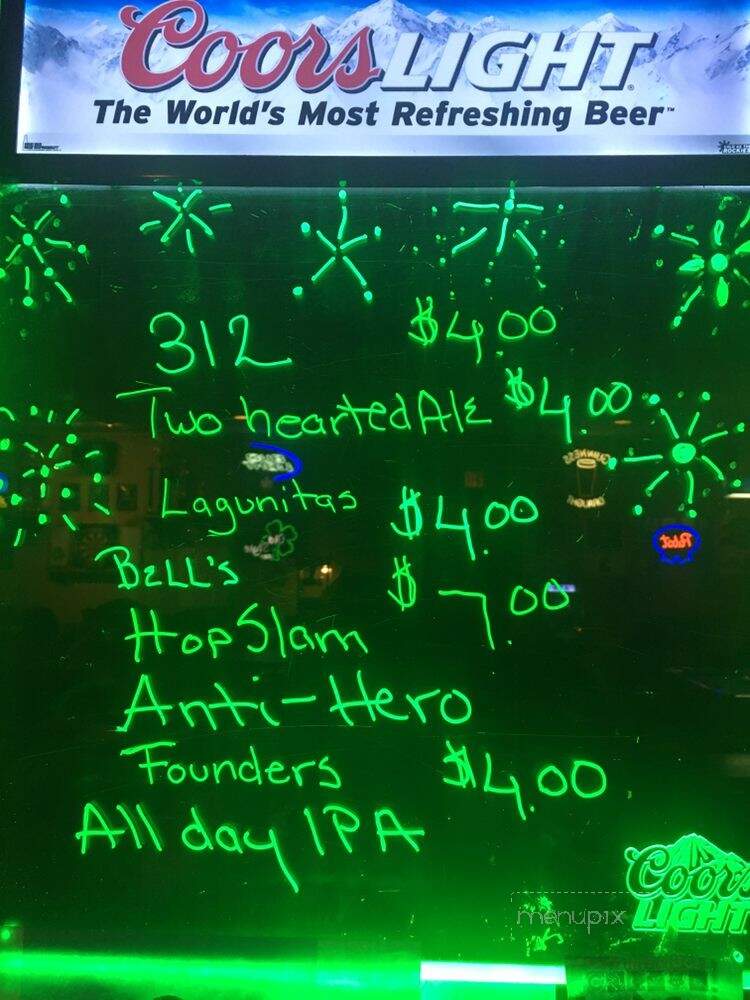 Coors LIGHT
The World's Most Refreshing Beer™
312 $4.00
Two hearted Ale $4.00
Lagunitas $4.00
BELL'S $7.00
HopSlam
Anti-Hero
Founders $4.00
All day IPA
Coors
LIGHT
menupix